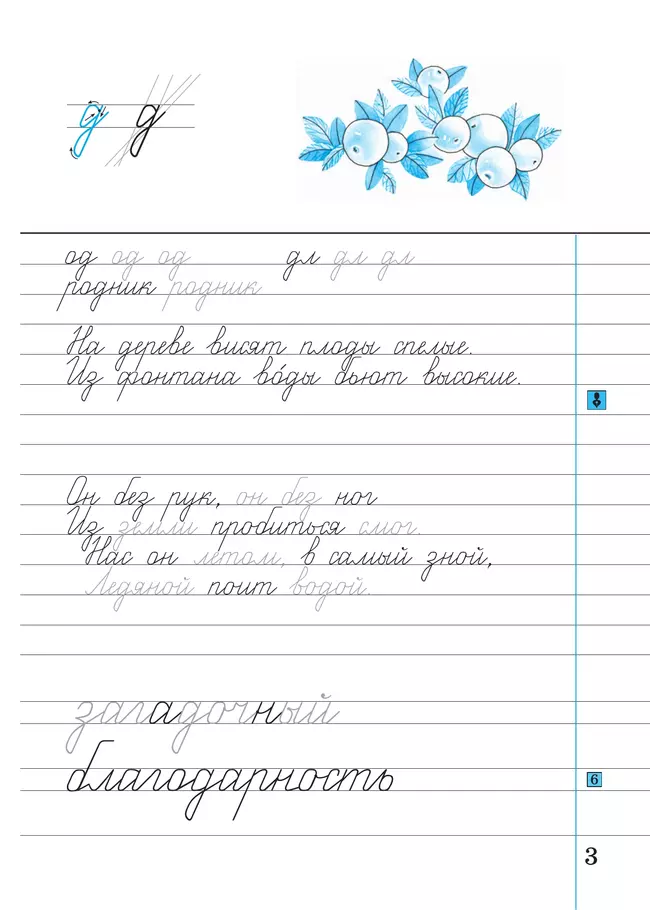 д д
од од од дл дл дл
родник родник
На дереве висят плоды спелые.
Из фонтана во́ды бьют высокие.
Он без рук, он без ног
Из земли пробиться смог.
Нас он летом, в самый зной,
Ледяной поит водой.
загадочный
благодарность
6
3